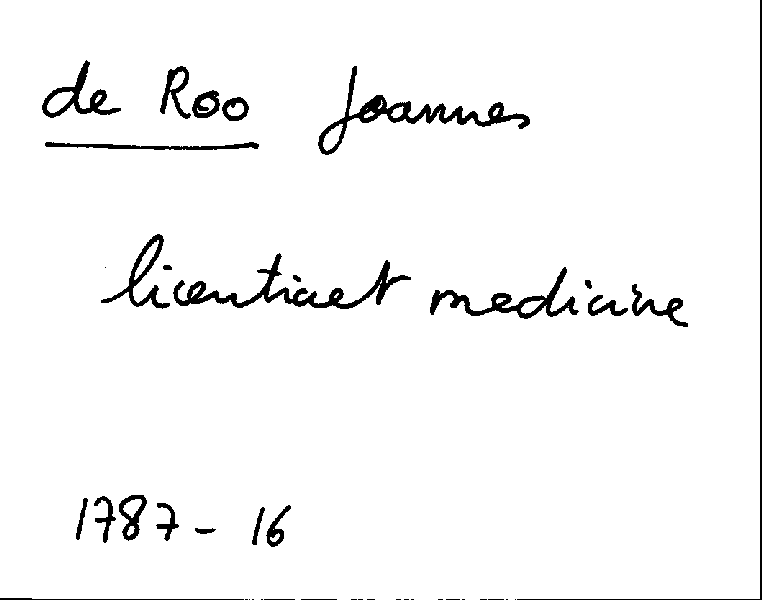 de Roo Joannes
licentiaet medicine
1787 - 16